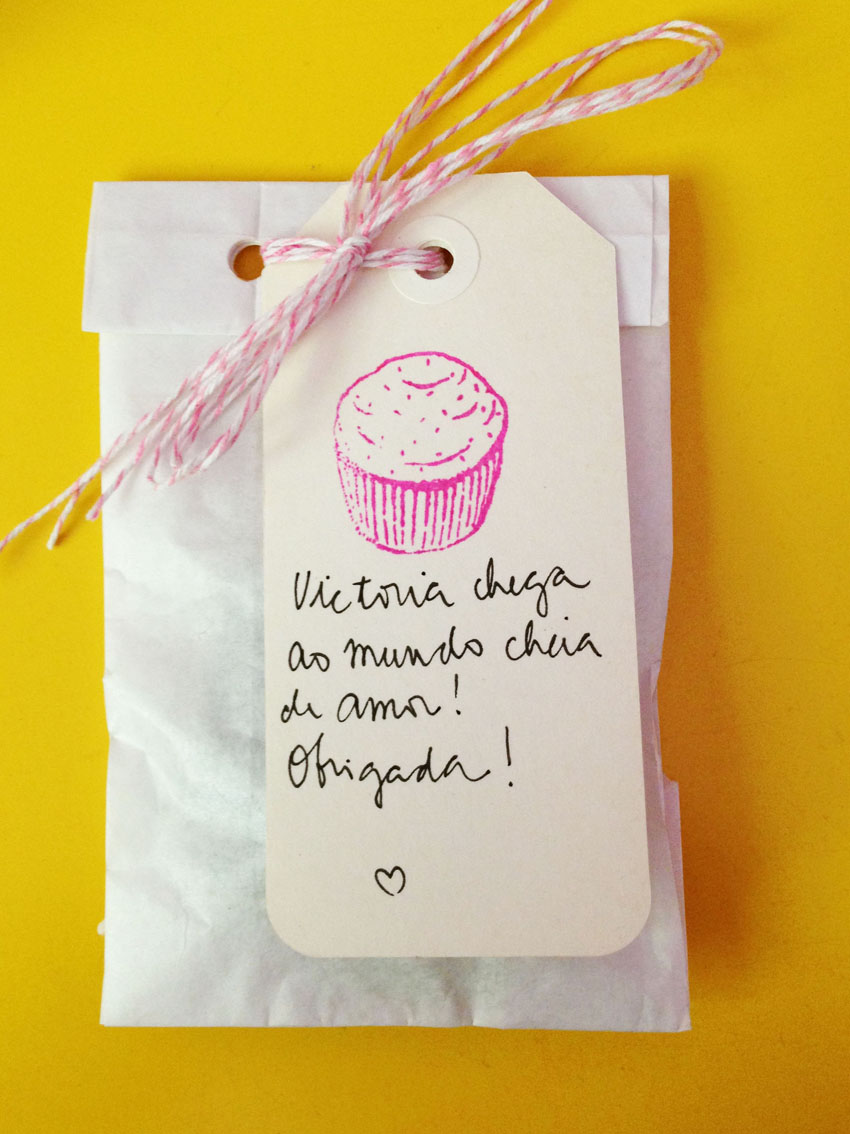 Victoria chega
ao mundo cheia
de amor!
Obrigada!